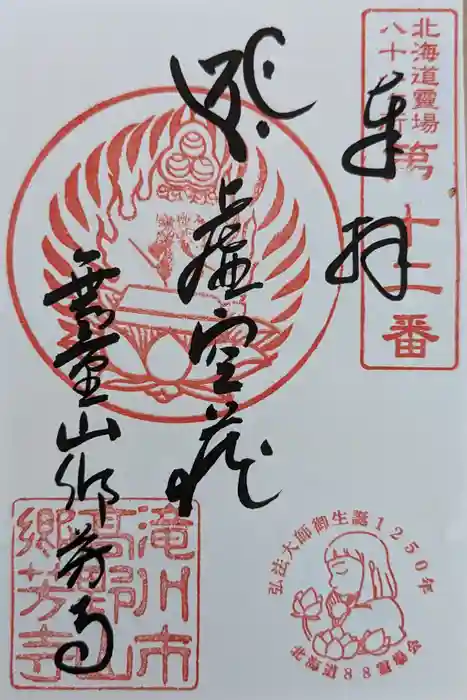 北海道靈場
八十八ヶ所
第十二番
奉拝
虚空蔵
無量山郷芳寺
滝川市
高野山
郷芳寺
弘法大師御生誕1250年
北海道88霊場会